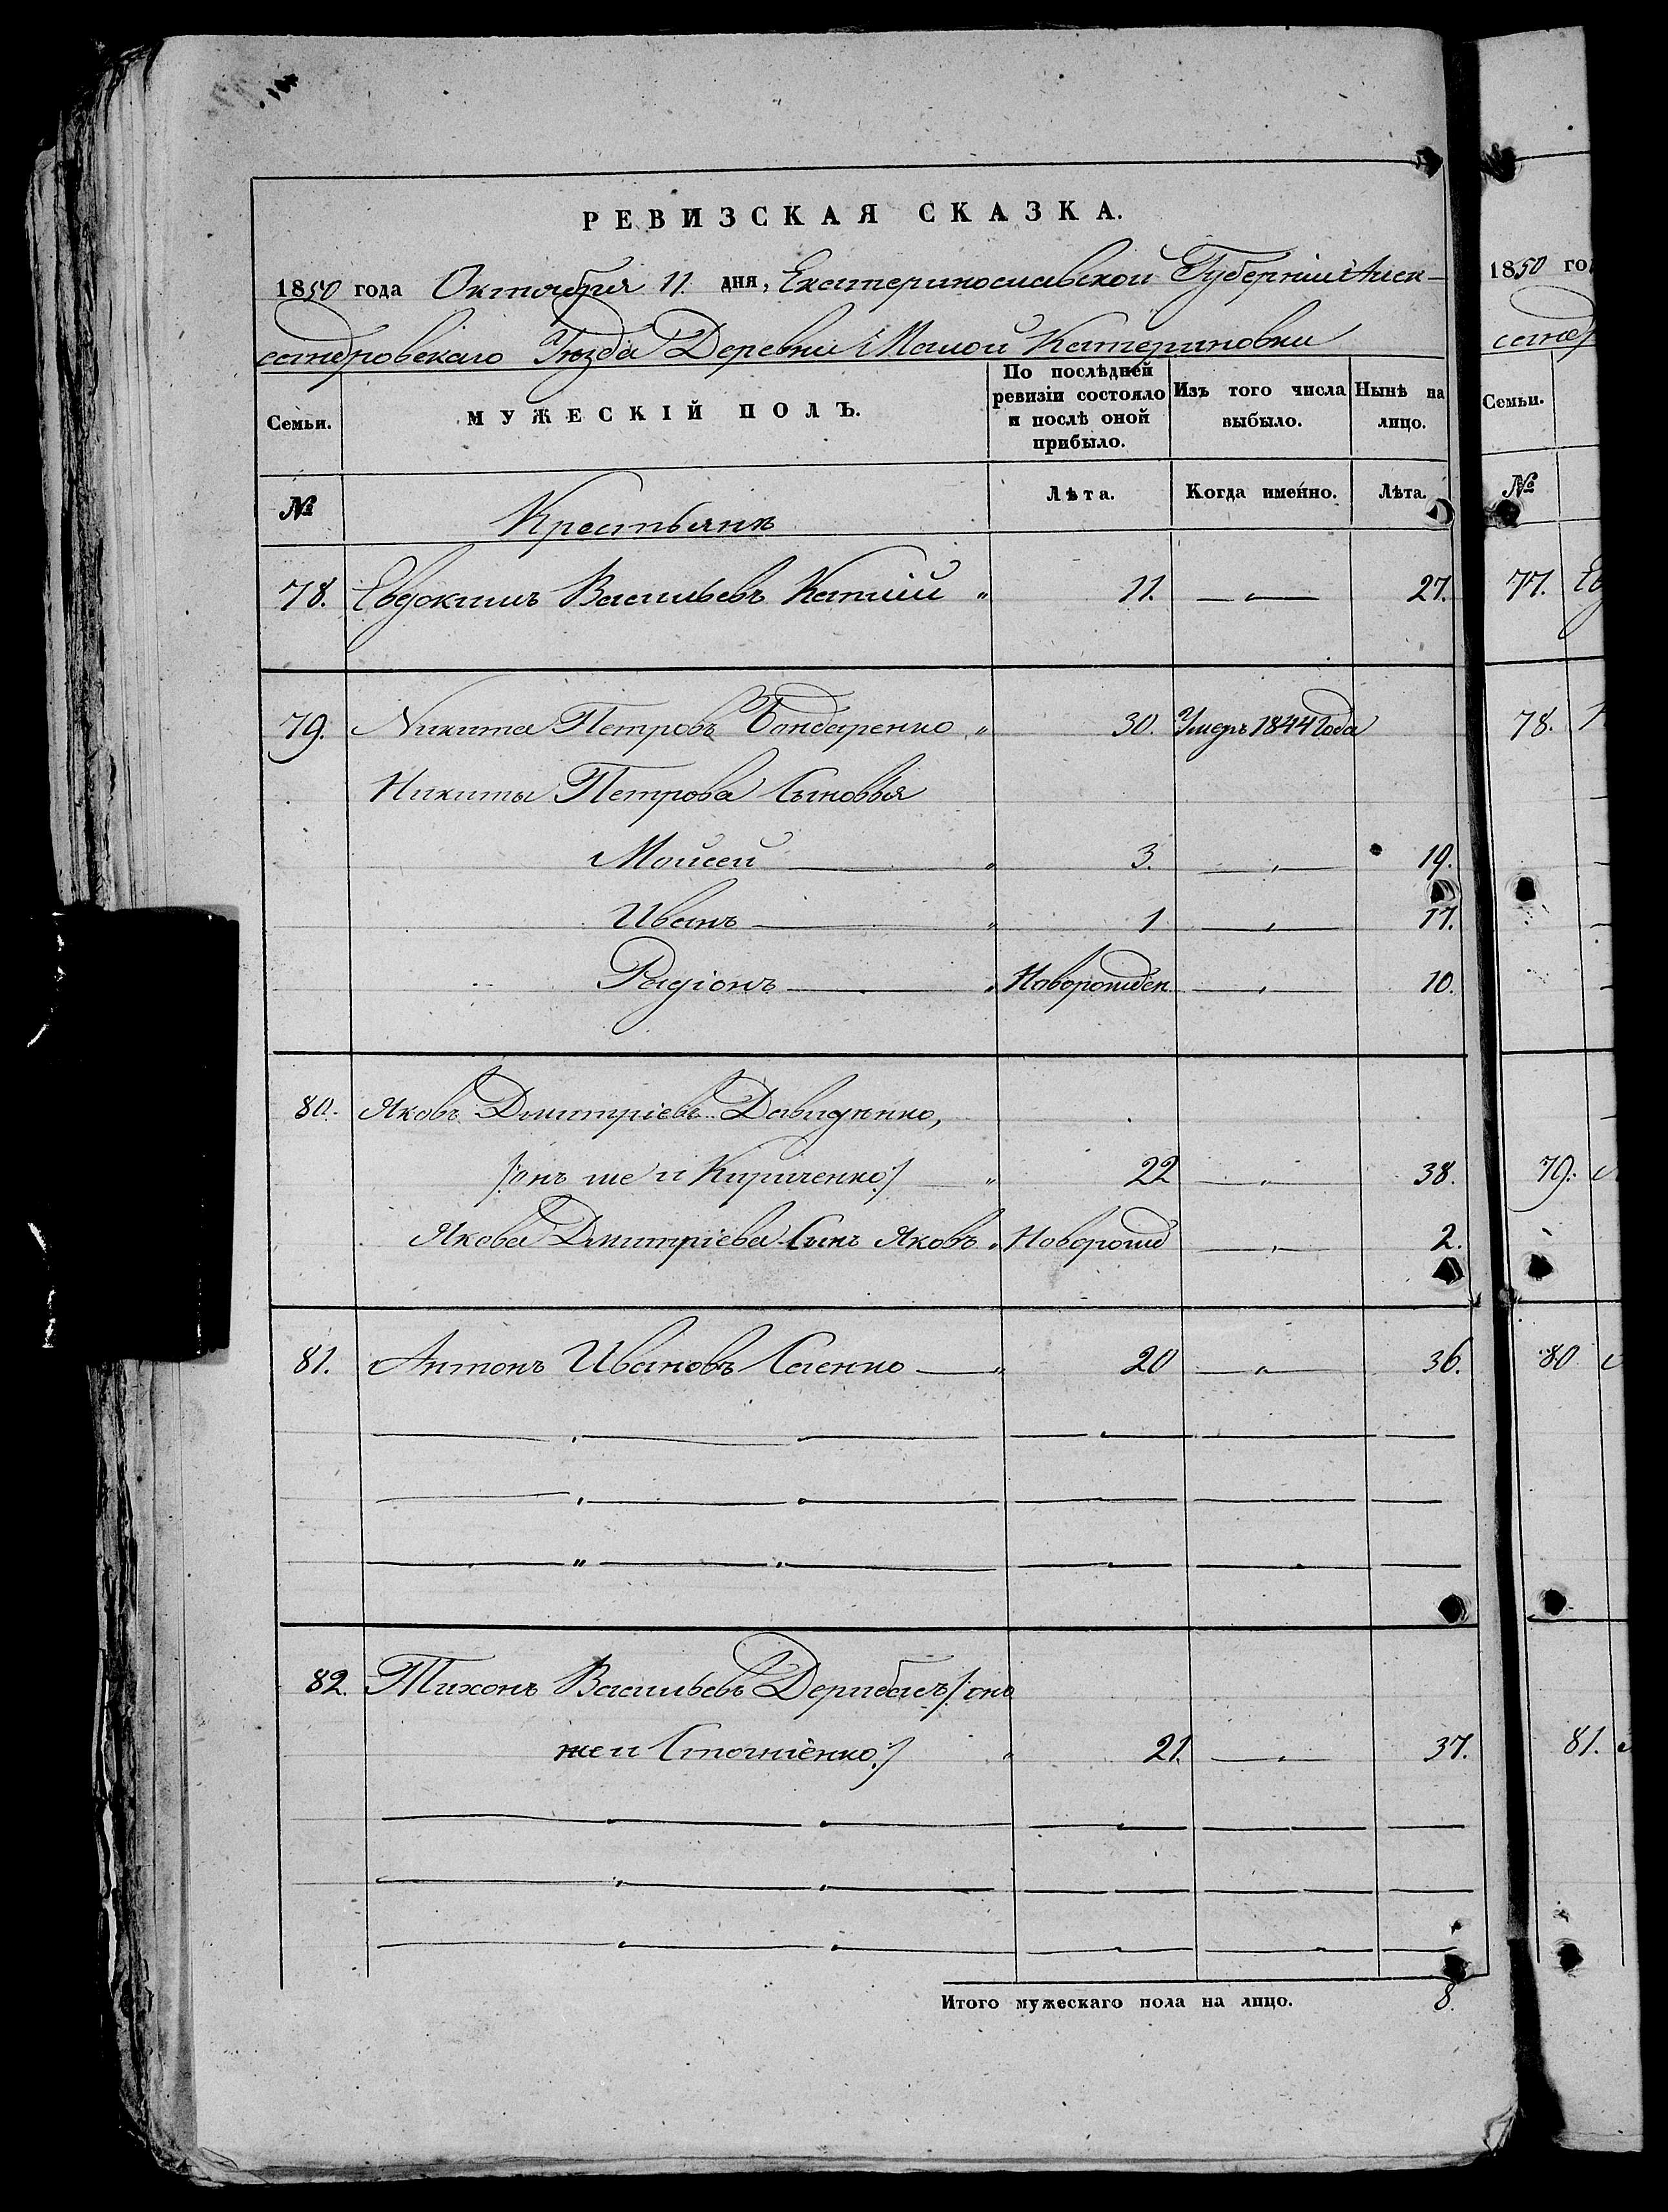 РЕВИЗСКАЯ СКАЗКА.
1850 года Октября 11 дня, Екатеринославской Губерніи Алек-
сандровскаго Уѣзда Деревни Малой Катериновки
Семьи. МУЖЕСКІЙ ПОЛЪ. По послѣдней ревизіи состояло и послѣ оной прибыло. Изъ того числа выбыло. Нынѣ на лицо.
№ Крестьянъ Лѣта. Когда именно. Лѣта.
78. Евдокимъ Васильевъ 11. — „ — 27.
79. Никита Петровъ Бондаренко „ 30. Умеръ 1844 Года
Никиты Петрова Сыновья
Моисей — „ 3. — „ — 19.
Иванъ — „ 1 — „ — 17.
Радіонъ — „ Новорожден — „ — 10.
80. Яковъ Дмитріевъ Давиденко,
/:онъ же и Кириченко:/ — „ 22 — „ — 38.
Якова Дмитріева Сынъ Яковъ „ Новорожд — „ — 2.
81. Антонъ Ивановъ Саенко — „ 20 — „ — 36.
82. Тихонъ Васильевъ Дерибасъ /:онъ
же и :/ „ 21. — „ — 37.
Итого мужескаго пола на лицо. 8.
1850 го
сандр
Семьи.
№
77. Ев
78.
79.
80
81.